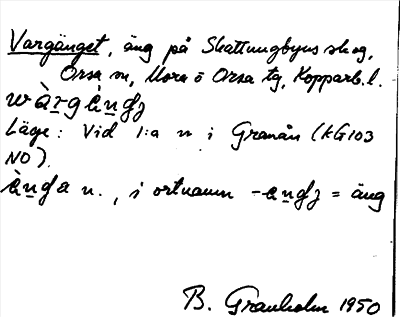 Vargänget, äng på Skattungbyns skog,
Orsa sn, Mora o Orsa tg, Kopparb. l.
Läge: Vid 1:a n i Granån (KG103
NO).
n., i ortnamn = äng
B. Granholm 1950